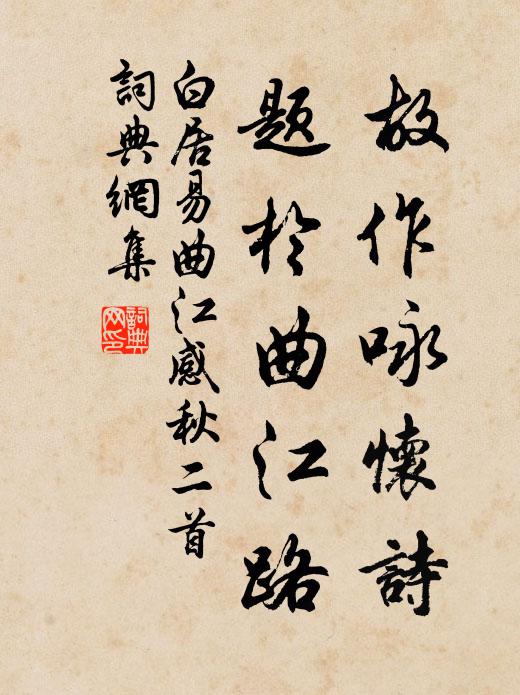 故作咏懷詩
題於曲江路
白居易曲江感秋二首
詞典網集
詞典网印